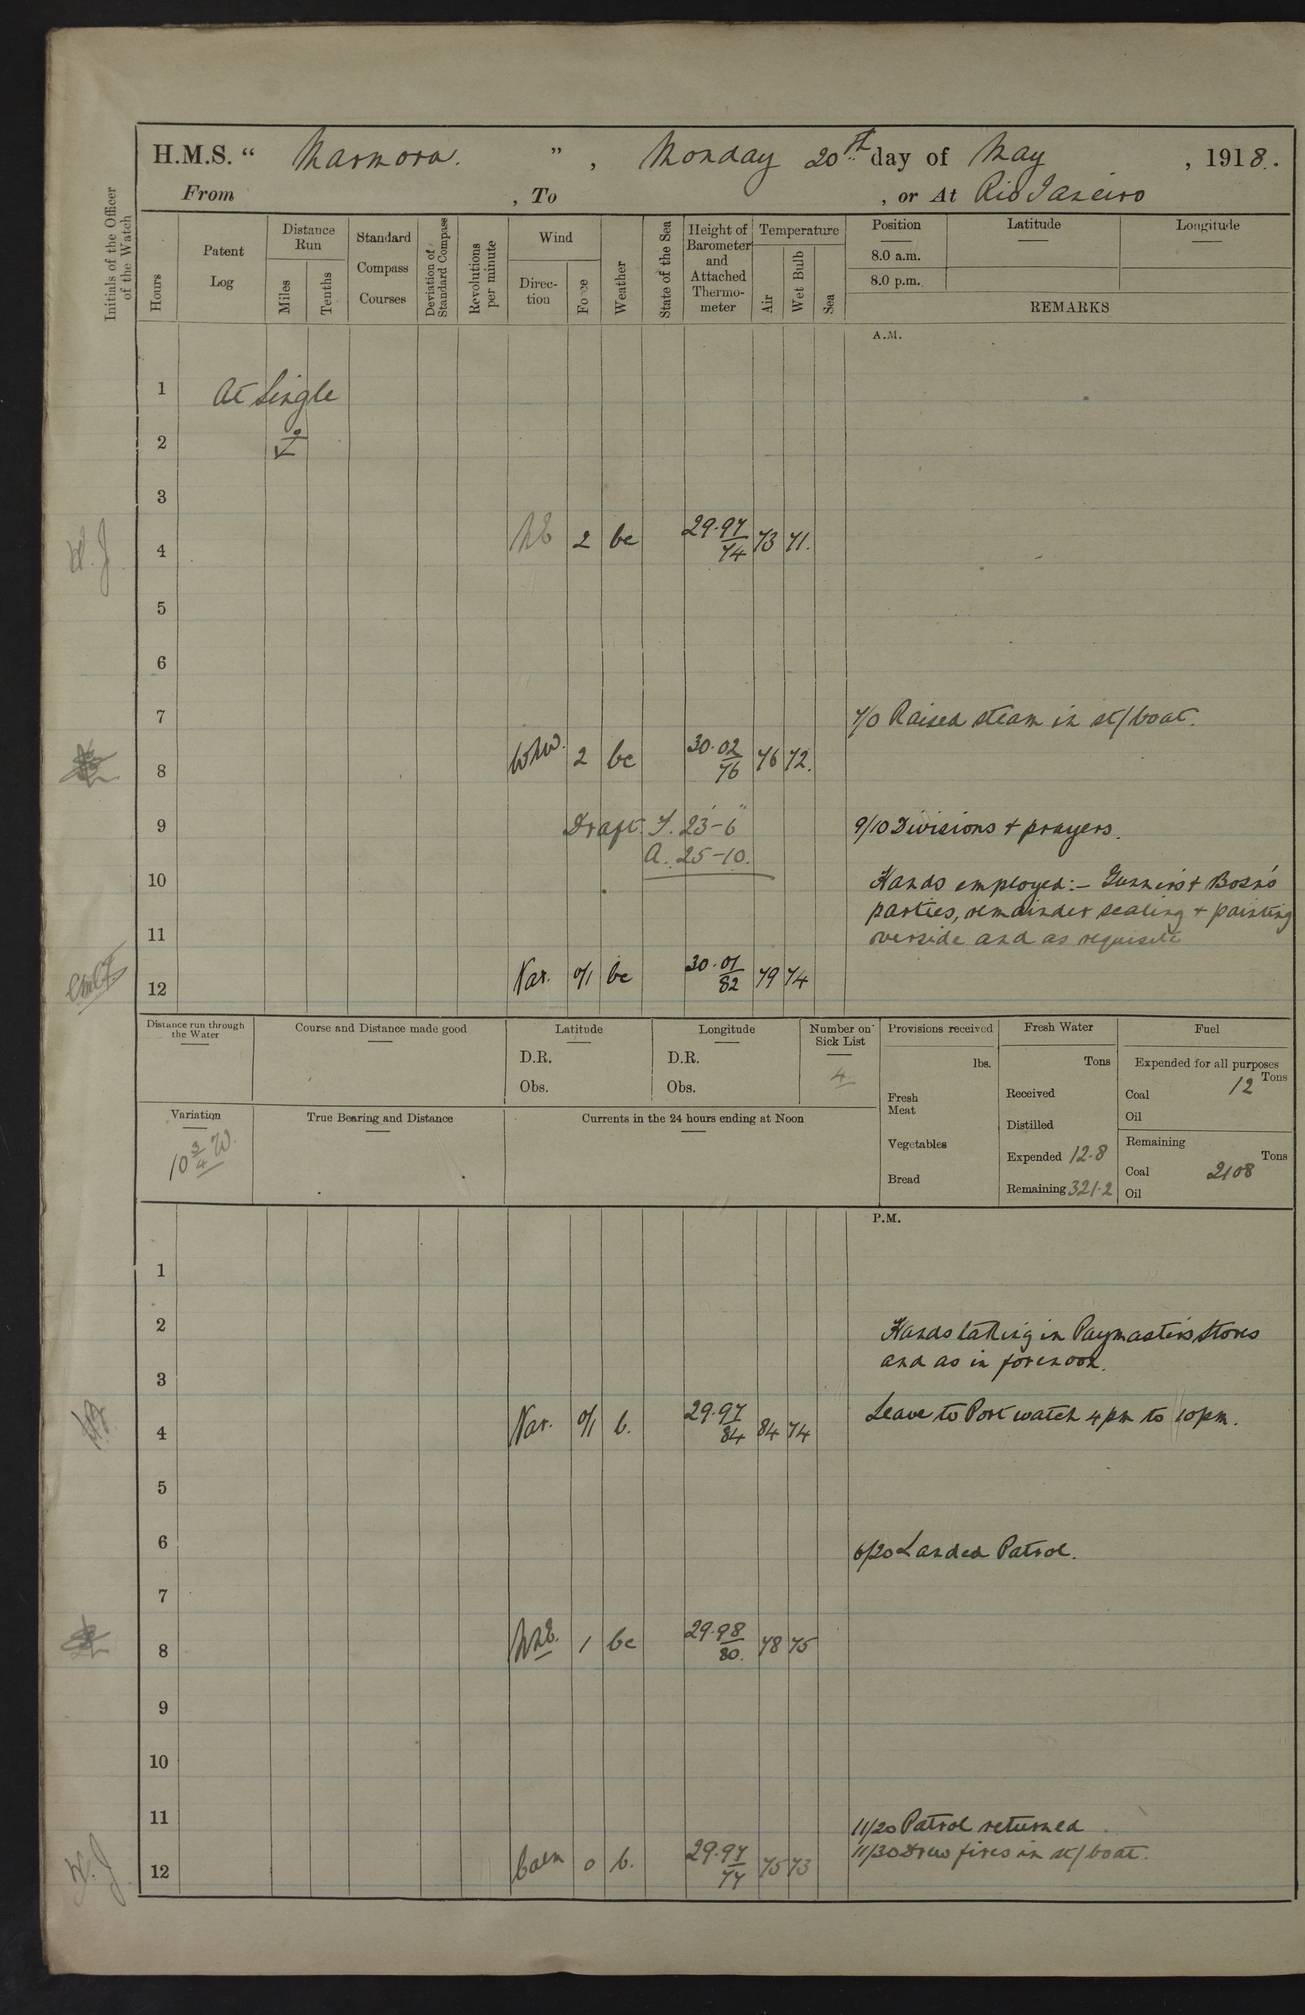 H.M.S. “ Marmora. ” , Monday 20th day of May , 1918.
From , To , or At Rio Janeiro
Initials of the Officer of the Watch
Hours
Patent Log
Distance Run
Miles
Tenths
Standard Compass Courses
Deviation of Standard Compass
Revolutions per minute
Wind
Direction
Force
Weather
State of the Sea
Height of Barometer and Attached Thermometer
Temperature
Air
Wet Bulb
Sea
Position
8.0 a.m.
8.0 p.m.
Latitude
Longitude
REMARKS
A.M.
1 At Single
2
3
4 NE 2 bc 29.97/74 73 71.
5
6
7 7/0 Raised steam in st/boat.
8 WNW. 2 bc 30.02/76 76 72.
9 Draft. F. 23'-6" 9/10 Divisions + prayers.
A. 25-10.
10 Hands employed:- Gunner's + Bosn's
parties, remainder scaling + painting
11 overside and as requisite
12 Var. 0/1 bc 30.01/82 79 74
Distance run through the Water
Course and Distance made good
Latitude
D.R.
Obs.
Longitude
D.R.
Obs.
Number on Sick List
4
Variation
10 3/4 W.
True Bearing and Distance
Currents in the 24 hours ending at Noon
Provisions received
lbs.
Fresh Meat
Vegetables
Bread
Fresh Water
Tons
Received
Distilled
Expended 12.8
Remaining 321.2
Fuel
Expended for all purposes
Tons
Coal 12
Oil
Remaining
Tons
Coal 2108
Oil
P.M.
1
2 Hands taking in Paymaster's Stores
and as in forenoon.
3
4 Var. 0/1 b. 29.97/84 84 74 Leave to Port watch 4pm to 10pm.
5
6 6/20 Landed Patrol.
7
8 NNE. 1 bc 29.98/80. 78 75
9
10
11 11/20 Patrol returned
12 Calm 0 b. 29.97/77 75 73 11/30 Drew fires in st/boat.